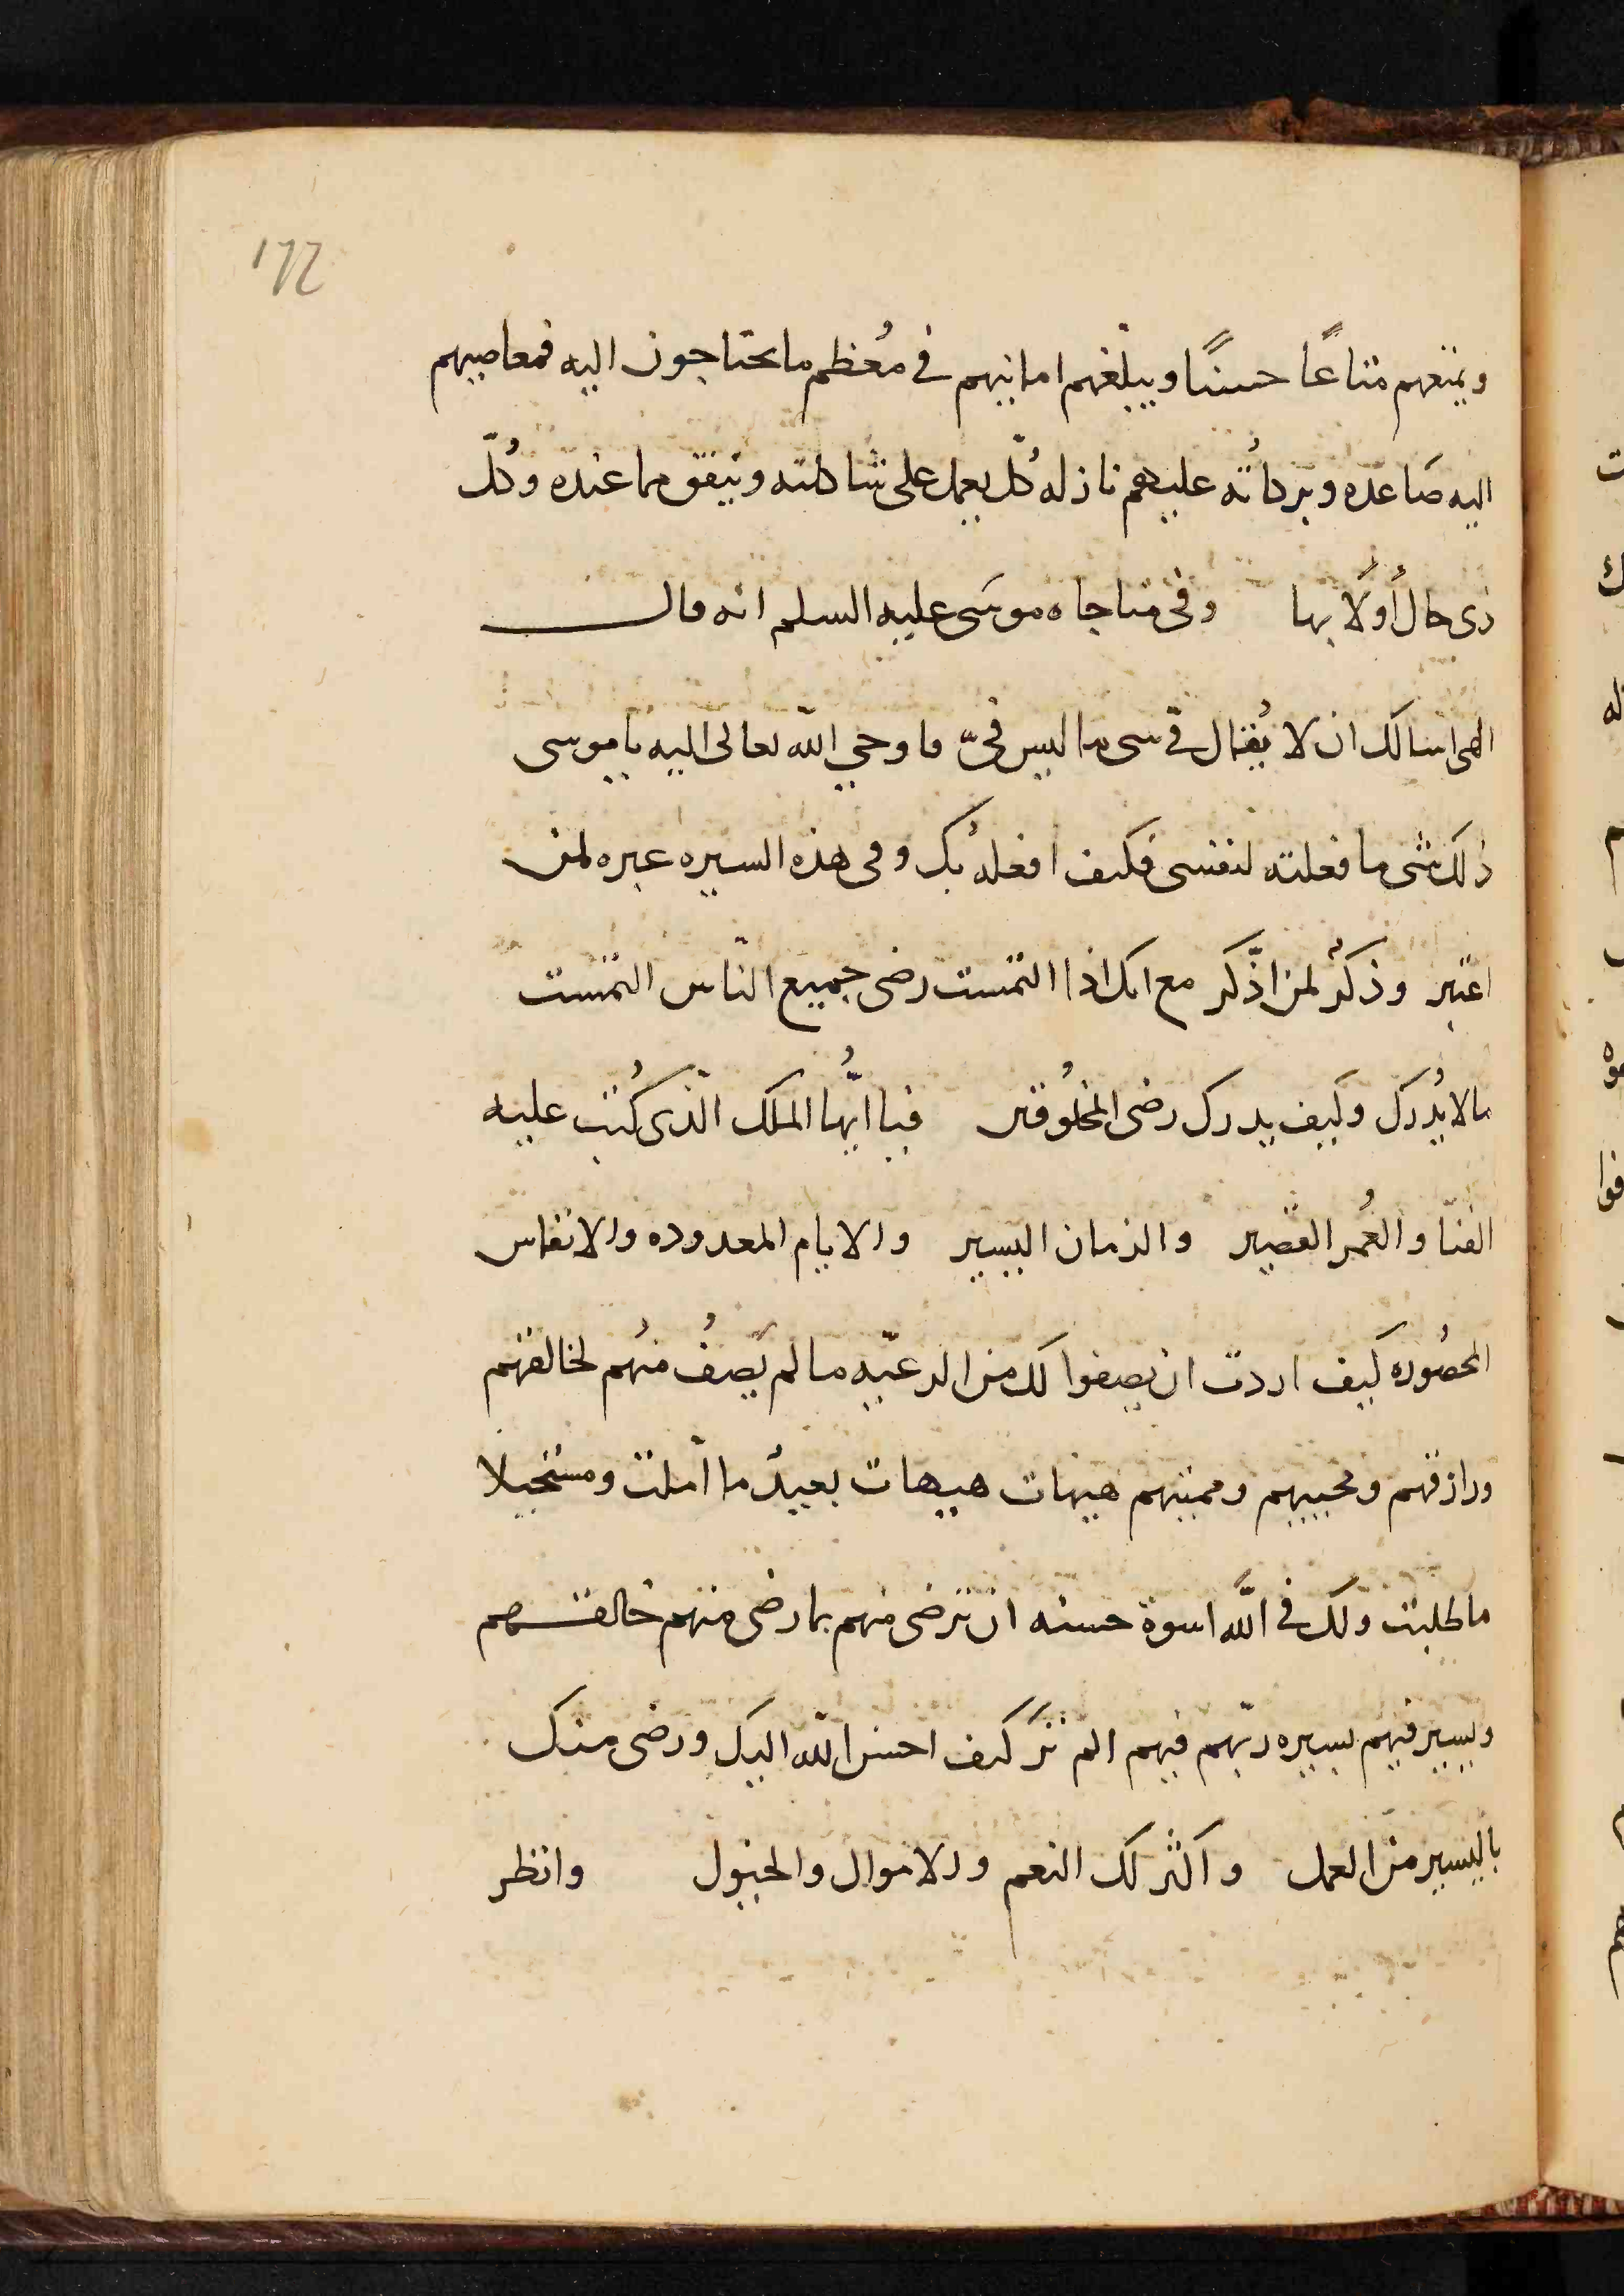 ١٦٢
ويمتعهم متاعًا حسنًا ويبلّغهم امانيهم في مُعظم ما يحتاجون اليه فمعاصيهم
اليه صَاعده وبركاتُه عليهم نازله كُلّ يعمل على شاكلته وينفق مما عنده وكُلّ
ذى حال أَولَا بها وفى مناجاه موسَى عليه السلم انه قال
الهى اسالك ان لا يُقال فيّ شى ما ليس فىّ فاوحي اللّه تعالى اليه يا موسى
ذلك شى ما فعلته لنفسى فكيف افعلهُ بك وفى هذه السيره عبره لمن
اعتبر وذكرٌ لمن اذّكر مع انك اذا التمست رضى جميع النّاس التمست
ما لا يُدرك وكيف يدرك رضى المخلُوقين فيا ايُّها الملك الّذى كُتب عليه
الفنَا والعُمر القصير والزمان اليسير والايام المعدوده والانفاس
المحصُوره كيف اردت ان يصفوا لك من الرعيّه ما لم يَصفُ منهُم لخالقهم
ورازقهم ومحييهم ومميتهم هيهات هيهات بعيدٌ ما امّلت ومستحيلا
ما طلبت ولك في اللَّه اسوة حسنه ان ترضى منهم بما رضى منهم خالقهم
وتسير فيهم بسيره ربّهم فيهم الم ترَ كيف احسن اللّه اليك ورضى منك
باليسير من العمل واكثر لك النعم والاموال والخيول وانظر